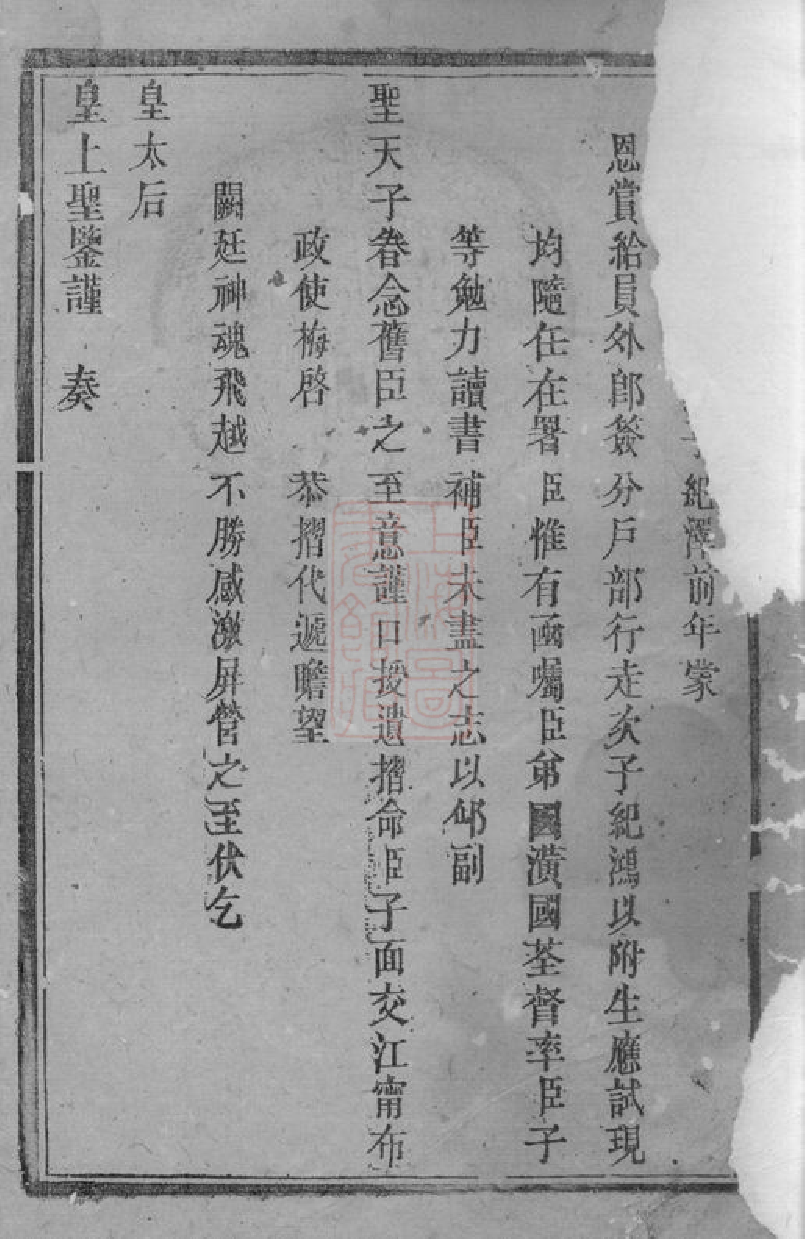 子紀澤前年蒙
恩賞給員外郎簽分戶部行走次子紀鴻以附生應試現
均隨任在署臣惟有函囑臣弟國潢國荃督率臣子
等勉力讀書補臣未盡之志以仰副
聖天子眷念舊臣之至意謹口授遺摺命臣子面交江甯布
政使梅啓 恭摺代遞瞻望
闕廷神魂飛越不勝感激屏營之至伏乞
皇太后
皇上聖鑒謹 奏
上海圖書館藏